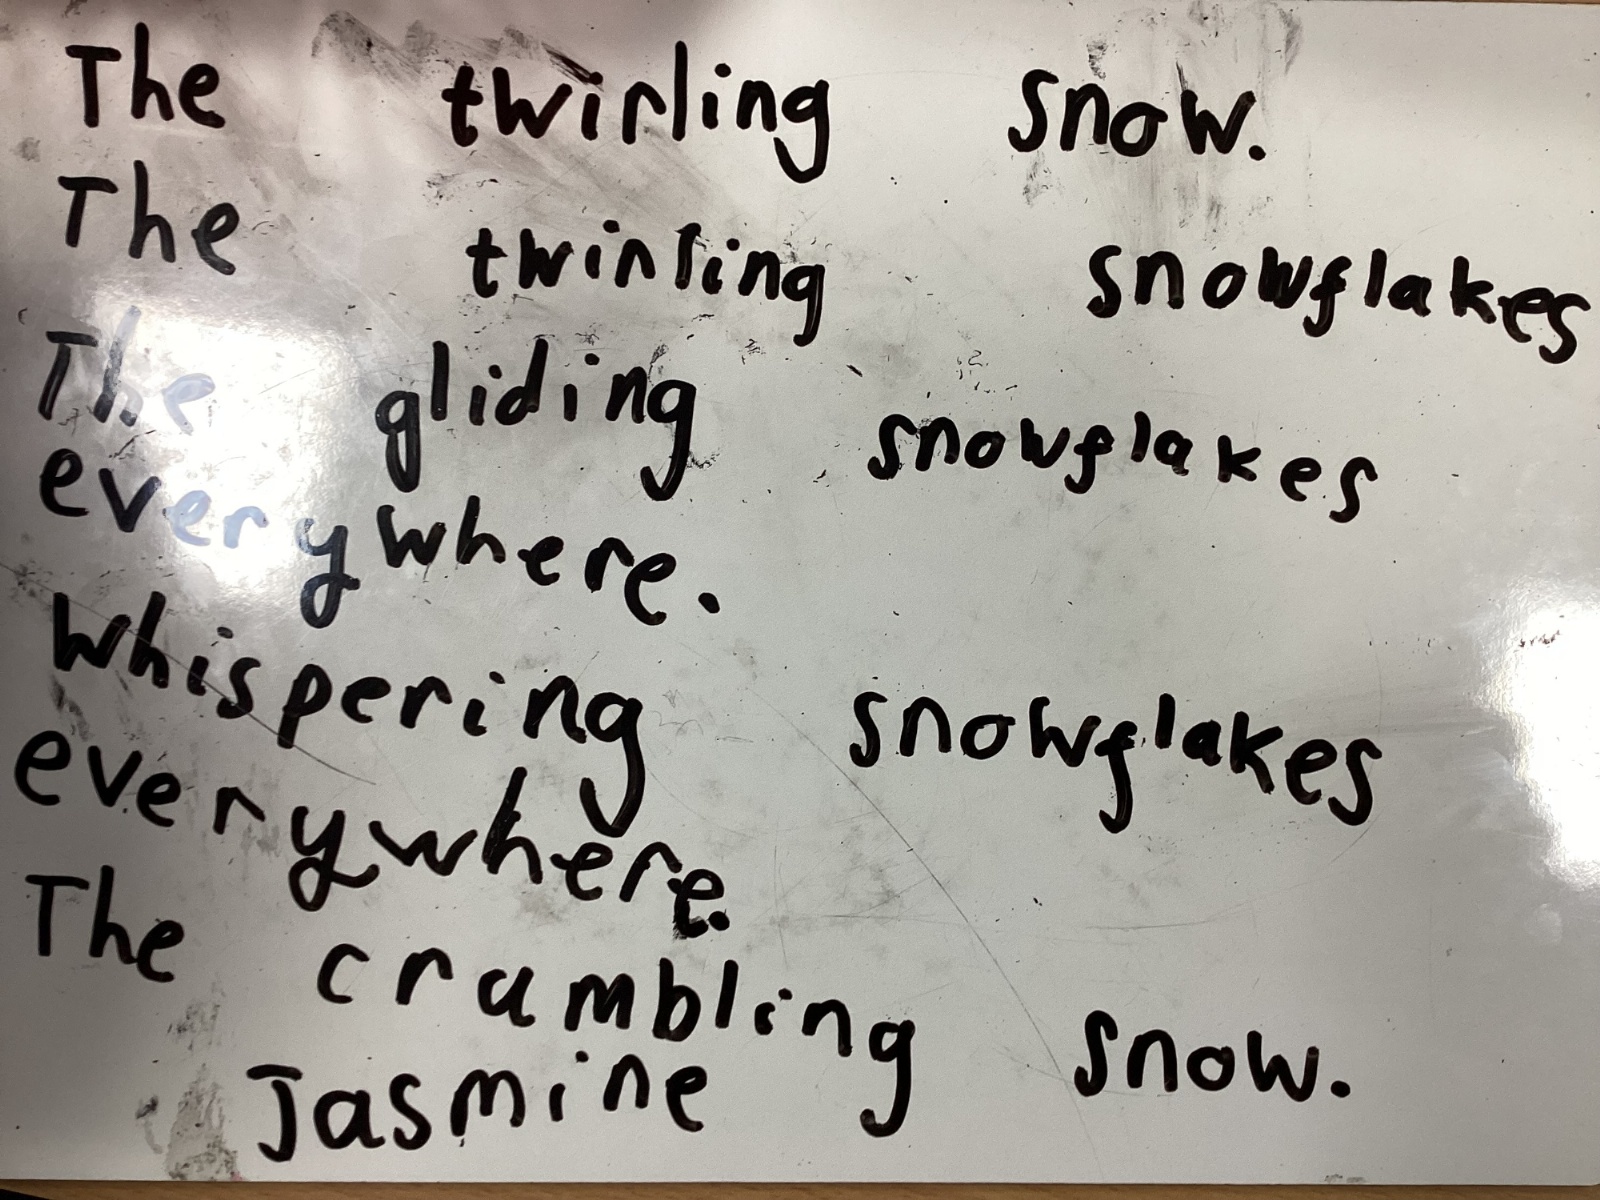 The twirling snow.
The twirling snowflakes
The gliding snowflakes
everywhere.
Whispering snowflakes
everywhere.
The crumbling snow.
Jasmine